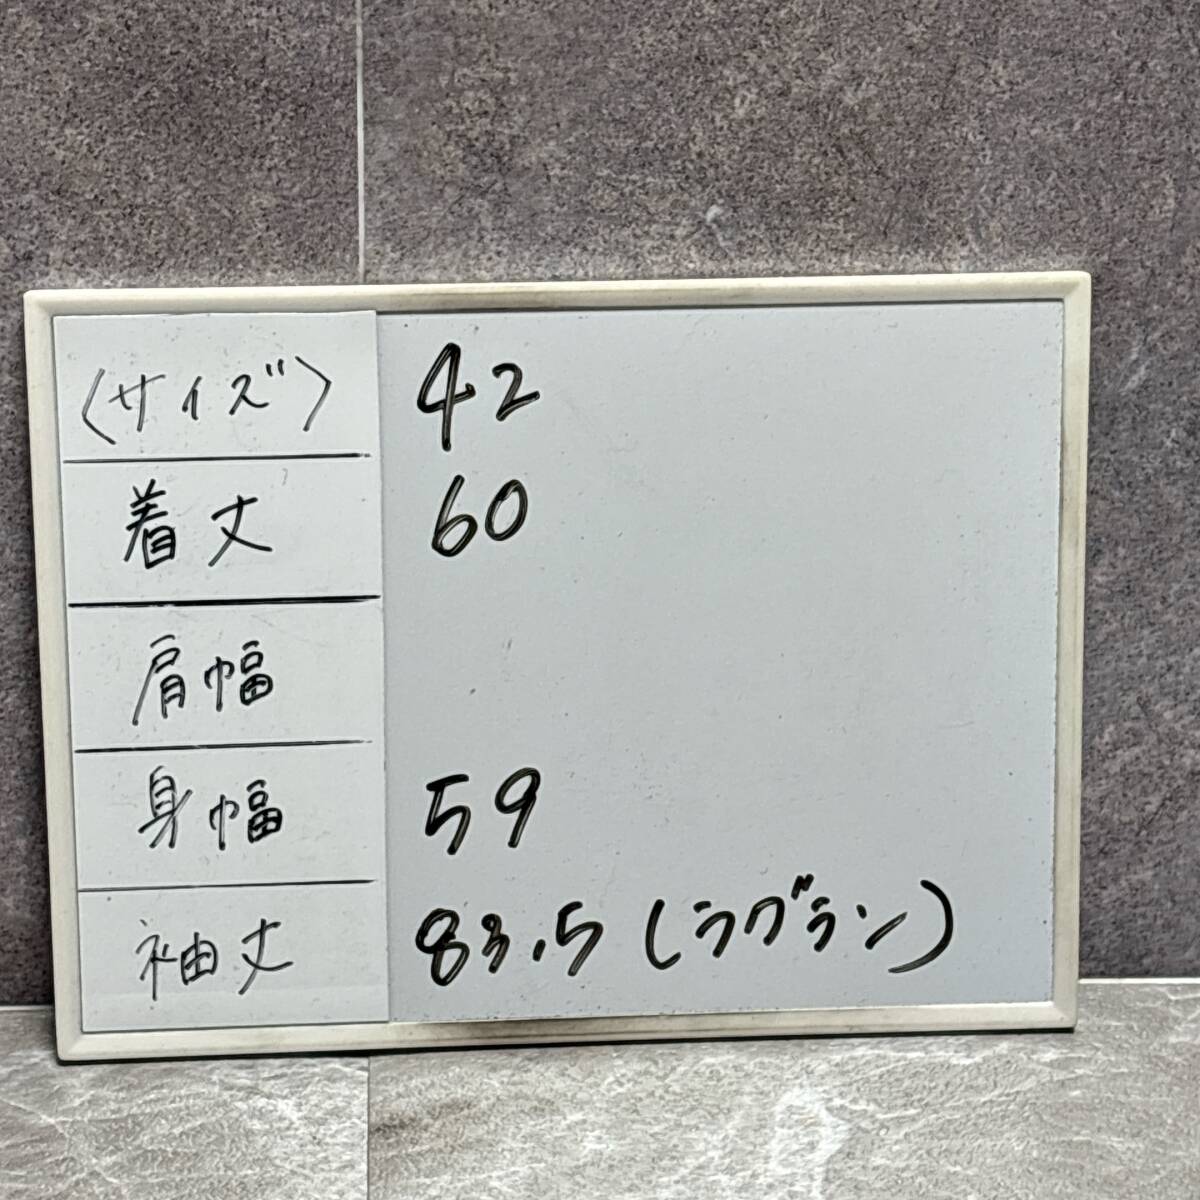 〈サイズ〉 42
着丈 60
肩幅
身幅 59
袖丈 83.5（ラグラン）